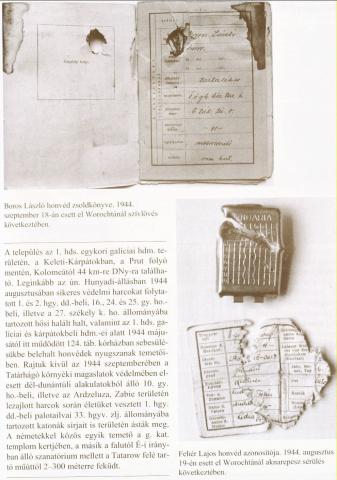 Boros László
Boros László honvéd zsoldkönyve, 1944.
szeptember 18-án esett el Worochtánál szívlövés
következtében.
A település az 1. hds. egykori galíciai hdm. te-
rületén, a Keleti-Kárpátokban, a Prut folyó
mentén, Kolomeától 44 km-re DNy-ra találha-
tó. Leginkább az ún. Hunyadi-állásban 1944
augusztusában sikeres védelmi harcokat folyta-
tott 1. és 2. hgy. dd.-beli, 16., 24. és 25. gy. ho.-
beli, illetve a 27. székely k. ho. állományába
tartozott hősi halált halt, valamint az 1. hds. ga-
líciai és kárpátokbeli hdm.-ei alatt 1944 máju-
sától itt működött 124. táb. kórházban sebesülé-
sükbe belehalt honvédek nyugszanak temetői-
ben. Rajtuk kívül az 1944 szeptemberében a
Tatárhágó környéki magaslatok védelmében el-
esett dél-dunántúli alakulatokból álló 10. gy.
ho.-beli, illetve az Ardzeluza, Zabie területén
lezajlott harcok során életüket vesztett 1. hgy.
dd.-beli palotailvai 33. hgyv. zlj. állományába
tartozott katonák sírjait is területén ásták meg.
A németekkel közös egyik temető a g. kat.
templom kertjében, a másik a falutól É-i irány-
ban álló szanatórium mellett a Tatarow felé tar-
tó műúttól 2–300 méterre feküdt.
HUNGARIA
Fehér Lajos honvéd azonosítója. 1944. augusztus
19-én esett el Worochtánál aknarepesz sérülés
következtében.